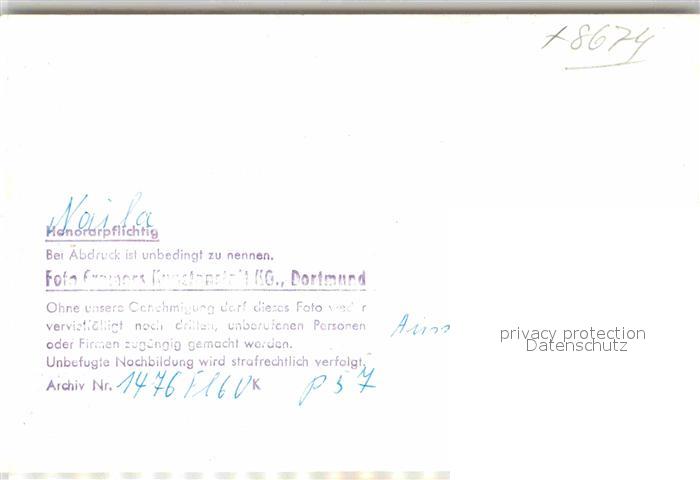 +8674
Naila
Honorarpflichtig
Bei Abdruck ist unbedingt zu nennen.
Foto Cramers Kunstanstalt KG., Dortmund
Ohne unsere Genehmigung darf dieses Foto weder
vervielfältigt noch dritten, unberufenen Personen
oder Firmen zugängig gemacht werden.
Unbefugte Nachbildung wird strafrechtlich verfolgt.
Archiv Nr. 1476 K p 57
privacy protection
Datenschutz